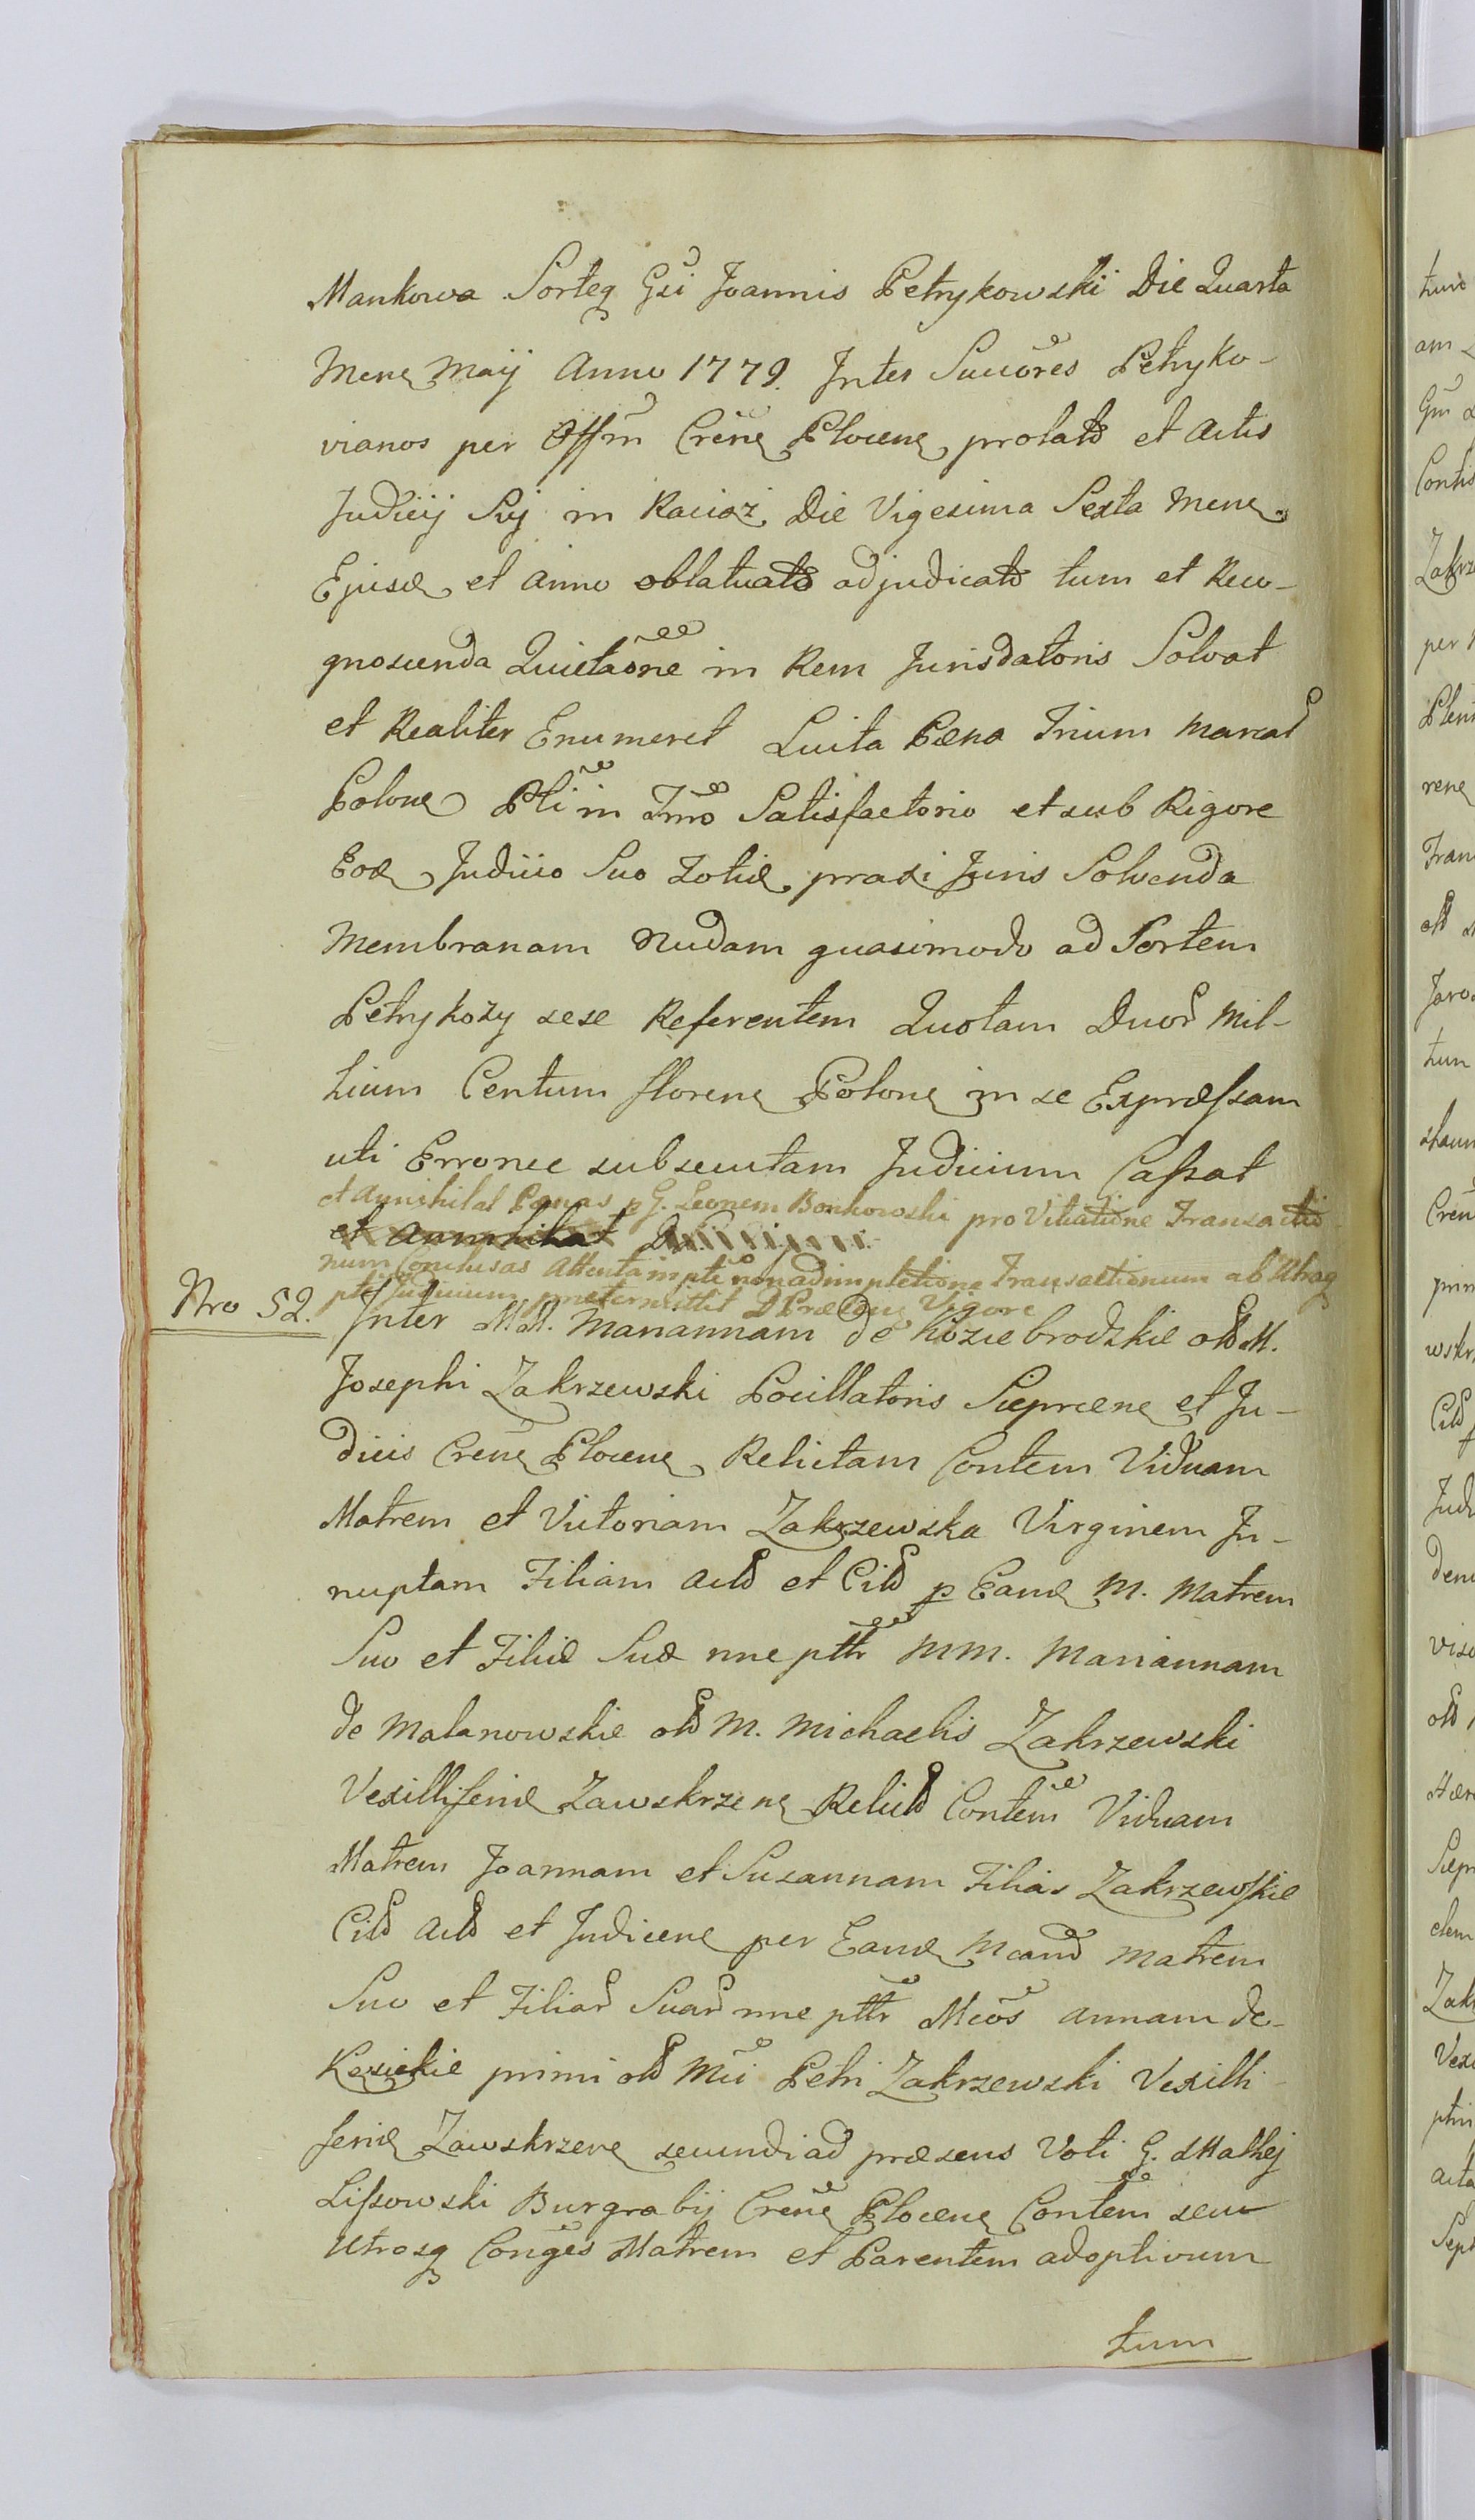 Mankowa Sorteq Gsi Joannis Petrykowskii Die Quarta
Mene Maij Anno 1779. Inter Succores Petryko-
vianos per Offm Crene Plocene prolato et Actis
Judicij Sui in Raciąz Die Vigesima Sexta Mene
Ejusd et anno oblatuato adjudicato tum et Reco-
gnoscenda Quietaone in Rem Jurisdatoris Solvat
et Realiter Enumeret Luita Pæna Trium Marcar
Polone Pti in Tmo Satisfactorio et sub Rigore
Eod Judicio Suo toties praxi Juris Solvenda
Membranam Nudam quasimodo ad Sortem
Petrykozy sese Referentem Quotam Duor Mil-
lium Centum florene Polone in se Expressam
uti Erronee subsecutam Judicium Cassat
et Annihilat Pænas p G. Leonem Bonkowski pro Vitiatione Transactio
et Annihilat
num Conclusas Attenta in pte non adimpletione Transactionum ab Utraq
pte Judicium prætermittit D Præsens Vigore
Nro 52. Inter M.M. Mariannam de Koziebrodzkie olim M.
Josephi Zakrzewski Pocillatoris Sieprcene et Ju-
dicis Crene Plocene Relictam Contem Viduam
Matrem et Victoriam Zakrzewska Virginem In-
nuptam Filiam Acto et Cito p Eand M. Matrem
Suo et Filiæ Suæ nne pttr MM. Mariannam
de Malanowskie olim M. Michaelis Zakrzewski
Vexilliferiæ Zawskrzene Relicto Contem Viduam
Matrem Joannam et Susannam Filias Zakrzewskie
Cito Acto et Judicene per Eand Mcand Matrem
Suo et Filiar Suar nne ptr Mcos Annam de
Kesickie primi olim Mci Petri Zakrzewski Vexilli-
feriæ Zawskrzene secundi ad præsens Voti G. Mathej
Lissowski Burgrabij Crene Plocene Contem seu
Utrosq Conges Matrem et Parentem adoptivum
tum